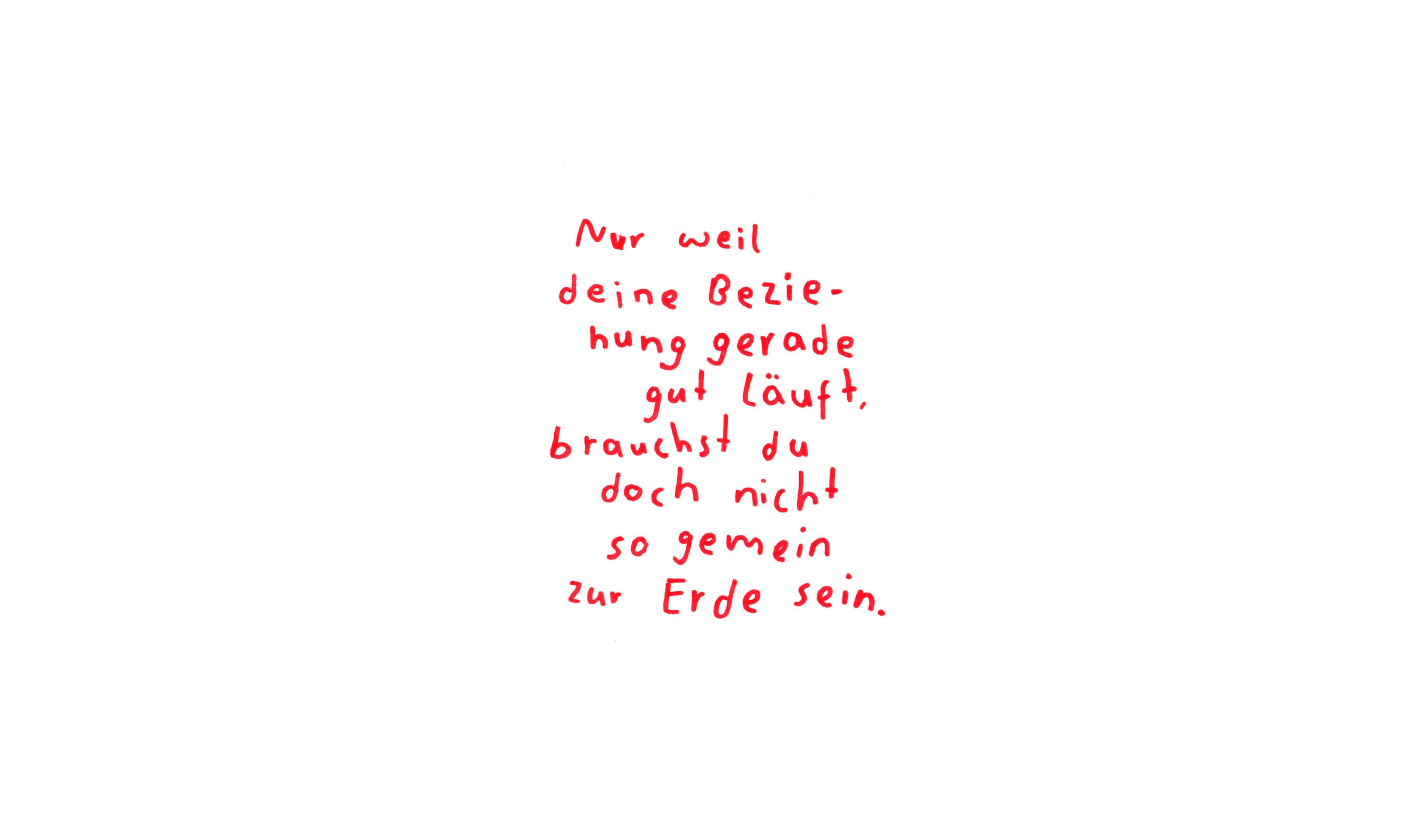 Nur weil
deine Bezie-
hung gerade
gut läuft,
brauchst du
doch nicht
so gemein
zur Erde sein.